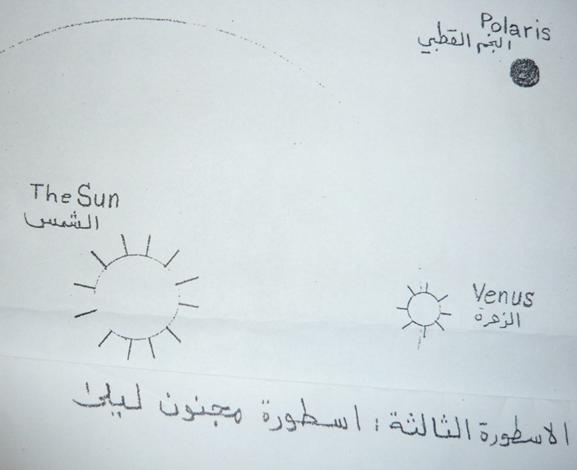 Polaris
النجم القطبي
The Sun
الشمس
Venus
الزهرة
الاسطورة الثالثة : اسطورة مجنون ليلى